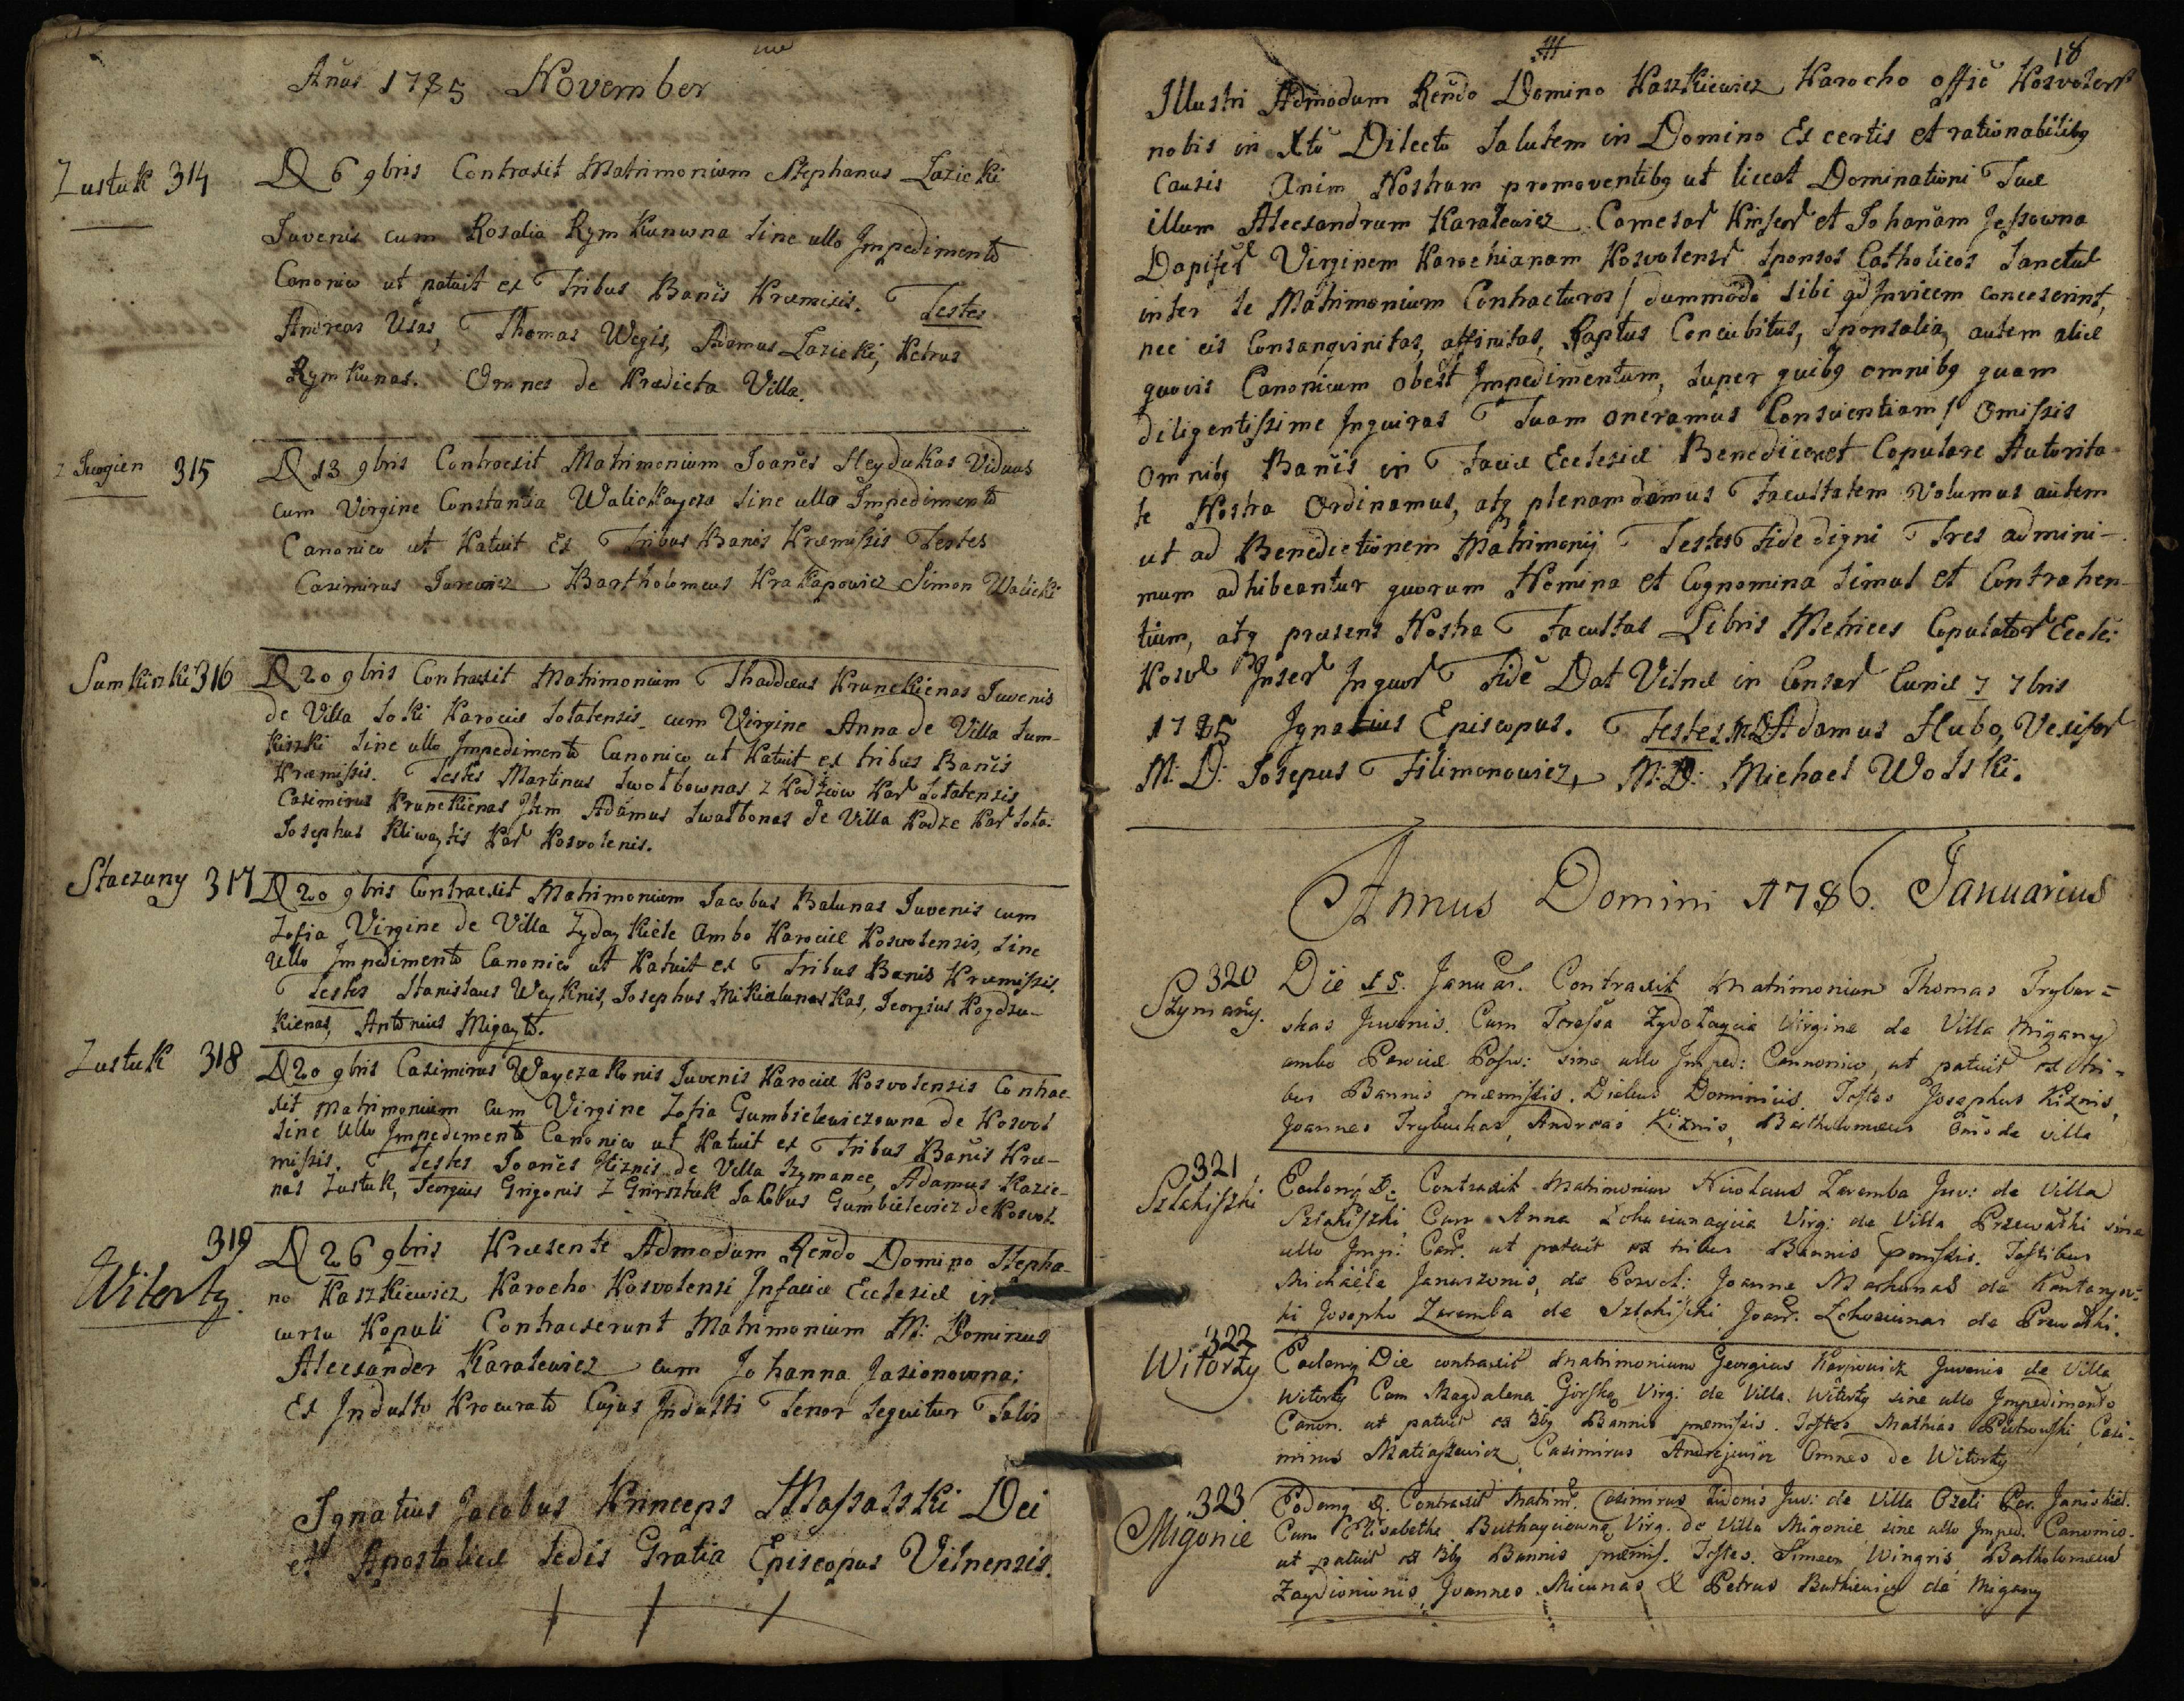 Añus 1785 November
Zustuk 314
D 6 9bris Contraxit Matrimonium Stephanus Lazicki
Juvenis cum Rosalia Rymkunowna Sine ullo Impedimento
Canonico ut patuit ex Tribus Banis Præmisis. Testes
Andreas Usas, Thomas Wegis, Adamus Lazicki, Petrus
Rymkunas. Omnes de Prædicta Villa.
315
D 13 9bris Contraxit Matrimonium Joañes Heydukas Viduus
cum Virgine Constantia Walickaycza Sine ullo Impedimento
Canonico ut Patuit Ex Tribus Banis Præmissis Testes
Casimirus Jarewicz Bartholomeus Krakapowicz Simon Walicki
Sumkinki 316
D 20 9bris Contraxit Matrimonium Thaddæus Prunckienas Juvenis
de Villa Soki Parociæ Solalensis cum Virgine Anna de Villa Sum-
kinki Sine ullo Impedimento Canonico ut Patuit ex tribus Banis
Præmissis. Testes Martinus Swolbownas z Kadziow Par Solalensis
Casimirus Prunckienas Item Adamus Swolbonas de Villa Kadze Par Sola:
Josephus Kliwaytis Par Posvolenis.
Staczuny 317
D 20 9bris Contraxit Matrimonium Jacobus Balunas Juvenis cum
Zofia Virgine de Villa Zydaykiele Ambo Parociæ Posvolensis, Sine
Ullo Impedimento Canonico ut Patuit ex Tribus Banis Præmissis.
Testes Stanislaus Weyknis, Josephus Mikielunaskas, Georgius Pogdzu-
kienas, Antonius Migayto.
Zustuk 318
D 20 9bris Casimirus Wayczakonis Juvenis Parociæ Posvolensis Contrac
xit Matrimonium cum Virgine Zofia Gumbielewiczowna de Posvol
Sine Ullo Impedimento Canonico ut Patuit ex Tribus Banis Præ-
missis. Testes Joañes Kiznis de Villa Szymance, Adamus Kazie-
nas Zustuk, Georgius Grigonis z Grirsztuk Jakobus Gumbielewicz de Posvol.
319
Witorty.
D 26 9bris Præsente Admodum Reñdo Domino Stepha-
no Paszkiewicz Parocho Posvolensi Infaciæ Ecclesiæ in
cursu Populi Contraxerunt Matrimonium M: Dominus
Alecsander Karalewicz cum Johanna Jasionowna;
Ex Indulto Procurato Cujus Indulti Tenor Sequitur Talis
Ignatius Jacobus Princeps Massalski Dei
et Apostolicæ Sedis Gratia Episcopus Vilnensis.
18
Illustri Admodum Reñdo Domino Paszkiewicz Parocho offiē Posvolens
nobis in Xto Dilecto Salutem in Domino Ex certis et rationabilibq
Causis Anim Nostram promoventibq ut liceat Dominationi Tuæ
illum Alecsandrum Karalewicz et Johañam Jessowna
Virginem Parochianam Posvolens Sponsos Catholicos Sanctæ
inter se Matrimonium Contracturos / dummodo Sibi ad Invicem conceserint,
nec eis Consangvinitas, affinitas, Raptus Concubitus, Sponsalia, autem aliæ
quovis Canonicum obest Impedimentum, Super quibq omnibq quam
diligentissime Inquiras Tuam oneramus Conscientiam / Omissis
Omnibq Banis in Faciæ Ecclesiæ Benedicere et Copulare Autorita-
te Nostra Ordinamus, atq plenam damus Facultatem Volumus autem
ut ad Benedictionem Matrimonij Testes Fide digni Tres admini-
mum adhibeantur quorum Nomina et Cognomina Simul et Contrahen-
tium, atq præsens Nostra Facultas Libris Metrices Copulator Eccle:
Posvl Inser Inquor Fide Dat Vilnæ in Conser Curiæ 7 7bris
1785 Ignatius Episcopus. Testes M:D Adamus Hubo, Vexifer
M: D: Josepus Filimonowicz, M:D: Michael Wolski.
Annus Domini 1786. Januarius
320
Szymañy.
Die 15. Januar. Contraxit Matrimonium Thomas Trybur=
skas Juvenis. Cum Teressa Zydelaycia Virgine de Villa Migany
ambo Parociæ Posw: sine ullo Imped: Cannonico, ut patuit ex tri=
bus Bannis præmissis. Diebus Dominicis. Testes Josephus Kiznis,
Joannes Tryburkas, Andreas Kiznis, Bartholomæus Omñs de villa
321
Szlakiszki
Eadem D: Contraxit Matrimonium Nicolaus Zaremba Juv: de Villa
Szlakiszki, Cum Anna Lohucianaycia Virg: de Villa Przewalki sine
ullo Imp: Can. ut patuit ex tribus Bannis pmissis. Testibus
Michaele Januszonis, de Poswol: Joanne Markunas de Kantaysz=
ki Josepho Zaremba de Szlakiszki Joan. Lohucinas de Przewalki.
322
Witorty
Eadem Die contraxit Matrimonium Georgius Karpowicz Juvenis de Villa
Witorty Cum Magdalena Gorska Virg: de Villa. Witorty sine ullo Impedimento
Canon. ut patuit ex 3bq Bannis præmissis. Testes Mathias Putrowski, Casi-
mirus Matiaszewicz, Casimirus Andrejewicz Omnes de Witorty
323
Migonie
Eadem D. Contraxit Matrim. Casimirus Zidonis Juv: de Villa Ozeli Par. Janiskiel.
Cum Elisabetha Buthayciowna, Virg. de Villa Migonie, sine ullo Imped. Canonico.
ut patuit ex 3bq Bannis præmis. Testes. Simeon Wingris, Bartholomæus
Zaydionionis, Joannes Micunas & Petrus Butkiewicz de Migany